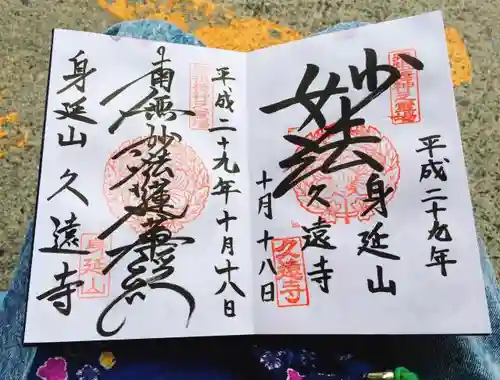 平成二十九年
妙法
身延山
久遠寺
十月十八日
久遠寺
平成二十九年十月十八日
南無妙法蓮華経
身延山
身延山 久遠寺